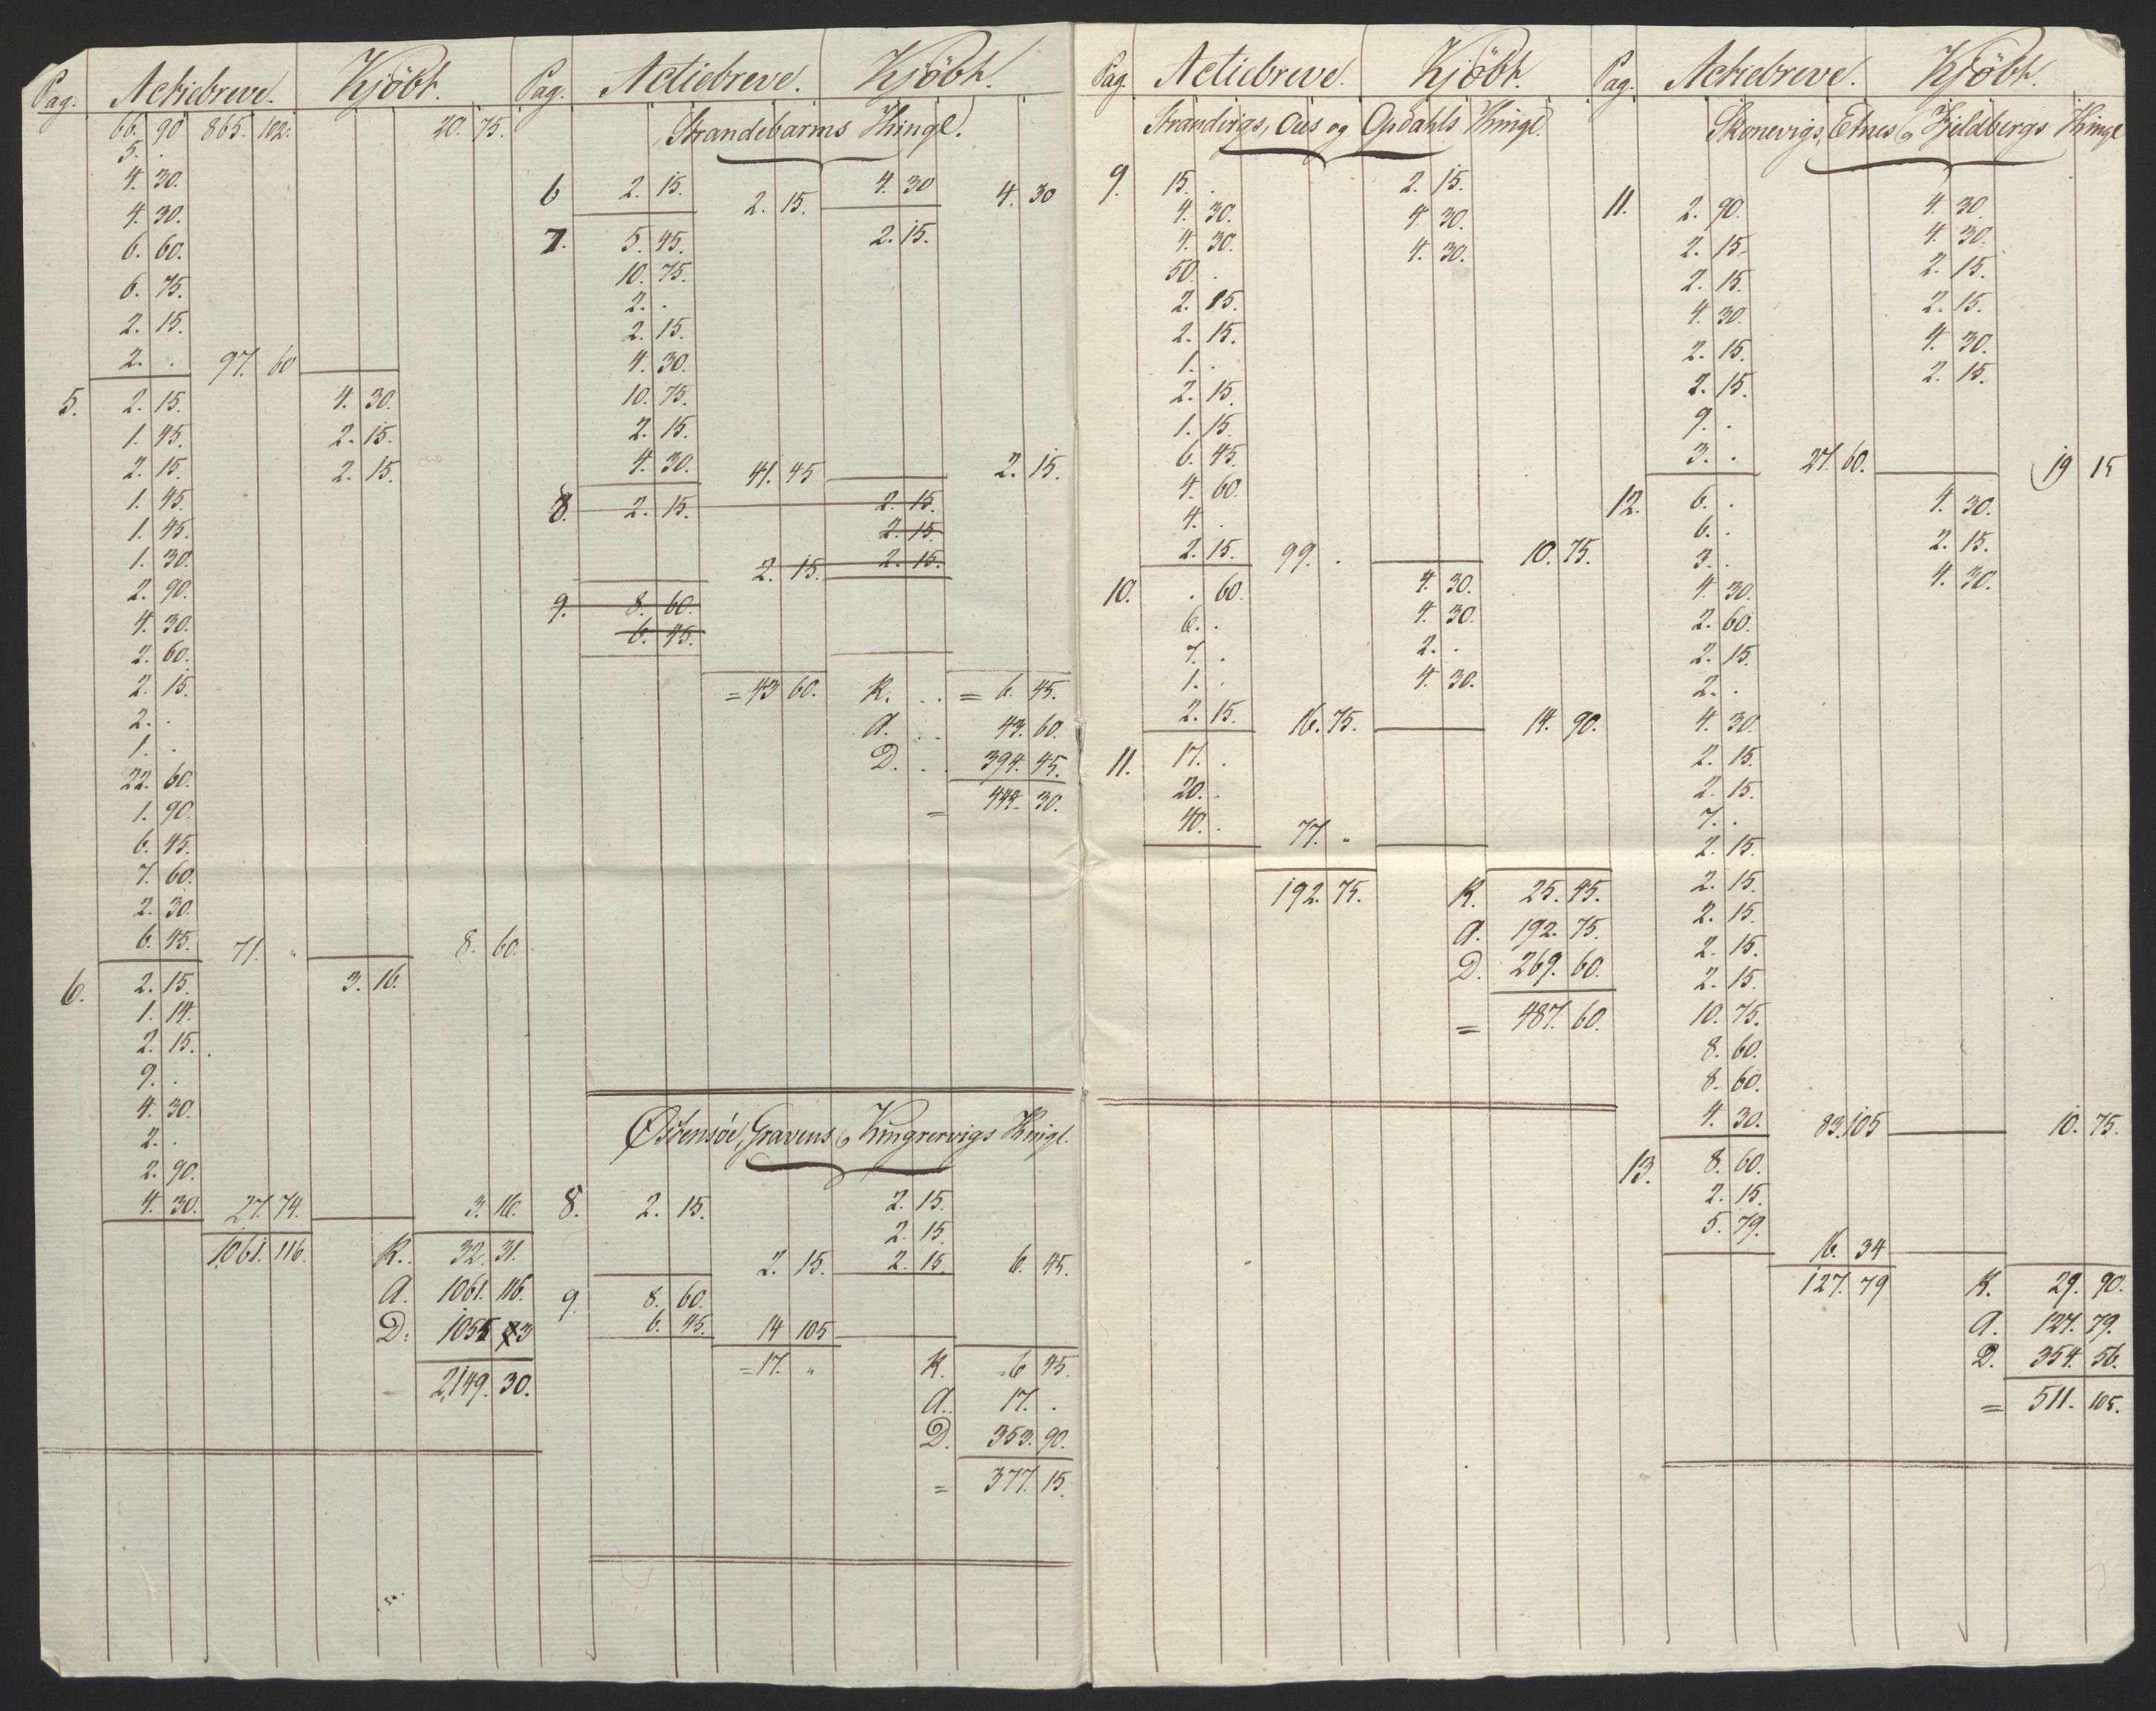 Pag. Actiebreve. Kjöbt.
66. 90 865. 102. 20. 75.
5. .
4. 30.
4. 30.
6. 60.
6. 75.
2. 15.
2. . 97. 60
5. 2. 15. 4. 30.
1. 45. 2. 15.
2. 15. 2. 15.
1. 45.
1. 45.
1. 30.
2. 90.
4. 30.
2. 60.
2. 15.
2. .
1. .
22. 60.
1. 90.
6. 45.
7. 60.
2. 30.
6. 45. 71. " 8. 60.
6. 2. 15. 3. 16.
1. 14.
2. 15.
9. .
4. 30.
2. .
2. 90.
4. 30. 27. 74. 3. 16.
1061. 116. K. 32. 31.
A. 1061. 116.
D. 1055 3
2,149. 30.
Pag. Actiebreve. Kjöbt.
Strandebarms Thingl.
6 2. 15. 2. 15. 4. 30 4. 30
7. 5. 45. 2. 15.
10. 75.
2. .
2. 15.
4. 30.
10. 75.
2. 15.
4. 30. 41. 45 2. 15.
8. 2. 15. 2. 15.
2. 15.
2. 15. 2. 15.
9. 8. 60.
6. 45.
= 43 60. K. . . = 6. 45.
A. . . 43. 60.
D. . . 394. 45.
= 444. 30.
Östensöe, Gravens & Kingservigs Thingl.
8. 2. 15. 2. 15.
2. 15.
2. 15. 2. 15. 6. 45.
9. 8. 60.
6. 45. 14 105
= 17. " K. = 6 45.
A. 17. .
D. 353. 90.
= 377. 15.
Pag. Actiebreve. Kjöbt.
Strandvigs, Ous og Opdahls Thingl.
9. 15. . 2. 15.
4. 30. 4 30.
4. 30. 4. 30.
50. .
2. 15.
2. 15.
1. .
2. 15.
1. 15.
6. 45.
4. 60.
4. .
2. 15. 99. . 10. 75.
10. . 60. 4. 30.
6. . 4. 30.
7. . 2. .
1. . 4. 30.
2. 15. 16. 75. 14. 90.
11. 17. .
20. .
40. . 77. "
192. 75. K. 25. 45.
A. 192. 75.
D. 269. 60.
= 487. 60.
Pag. Actiebreve. Kjöbt.
Skonevigs, Etnes & Fjeldbergs Thingl
11. 2. 90. 4. 30.
2. 15. 4. 30.
2. 15. 2. 15.
4. 30. 2. 15.
2. 15. 4. 30.
2. 15. 2. 15.
9. .
3. . 27. 60. 19 15
12. 6. . 4. 30.
6. . 2. 15.
3. . 4. 30.
4. 30.
2. 60.
2. 15.
2. .
4. 30.
2. 15.
2. 15.
7. .
2. 15.
2. 15.
2. 15.
2. 15.
2. 15.
10. 75.
8. 60.
8. 60.
4. 30. 83. 105 10. 75.
13. 8. 60.
2. 15.
5. 79.
16. 34
127. 79 K. 29. 90.
A. 127. 79.
D. 354. 56.
= 511. 105.